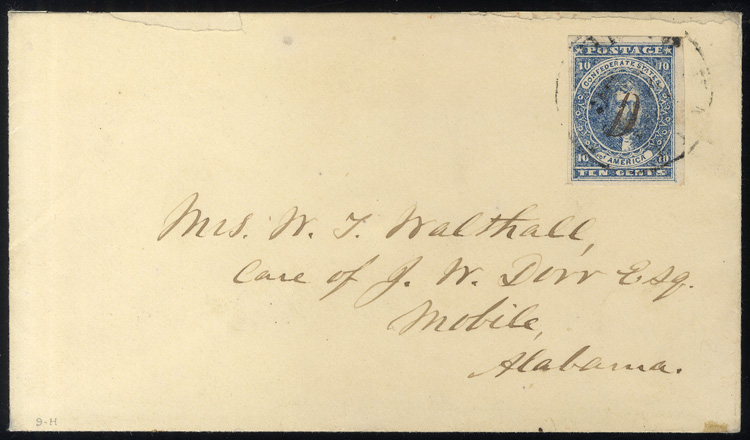 POSTAGE
10 10
CONFEDERATE STATES
D
OF AMERICA
10 10
TEN CENTS
Mrs. W. T. Walthall,
Care of J. W. Dorr Esq.
Mobile,
Alabama.
9-H